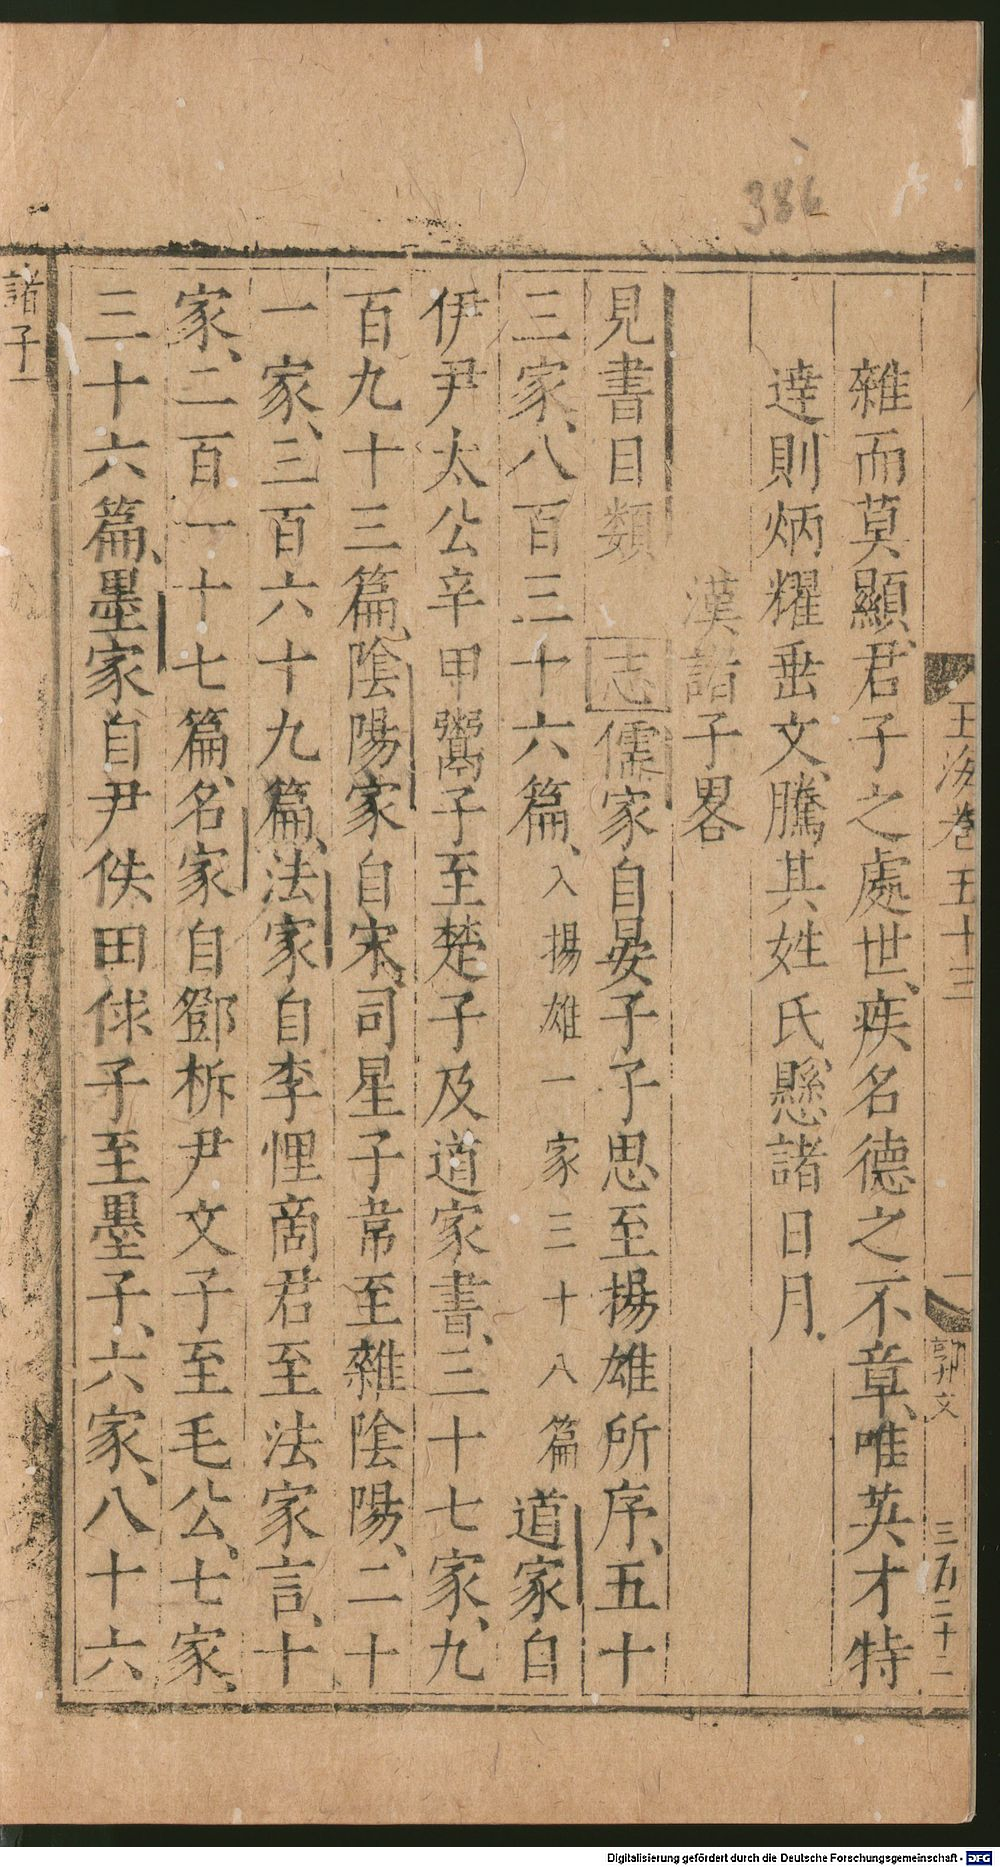 386
玉海卷五十三
郭文
三百二十二
雜而莫顯、君子之處世、疾名德之不章、唯英才特
達則炳耀垂文、騰其姓氏、懸諸日月、
漢諸子畧
見書目類 志儒家自晏子子思至揚雄所序、五十
三家、八百三十六篇、入揚雄一家三十八篇道家自
伊尹太公辛甲鬻子至楚子及道家書、三十七家、九
百九十三篇、陰陽家自宋、司星子韋至雜陰陽、二十
一家、三百六十九篇、法家自李悝商君至法家言、十
家、二百一十七篇、名家自鄧析尹文子至毛公、七家、
三十六篇、墨家自尹佚田俅子至墨子、六家、八十六
諸子一
Digitalisierung gefördert durch die Deutsche Forschungsgemeinschaft - DFG